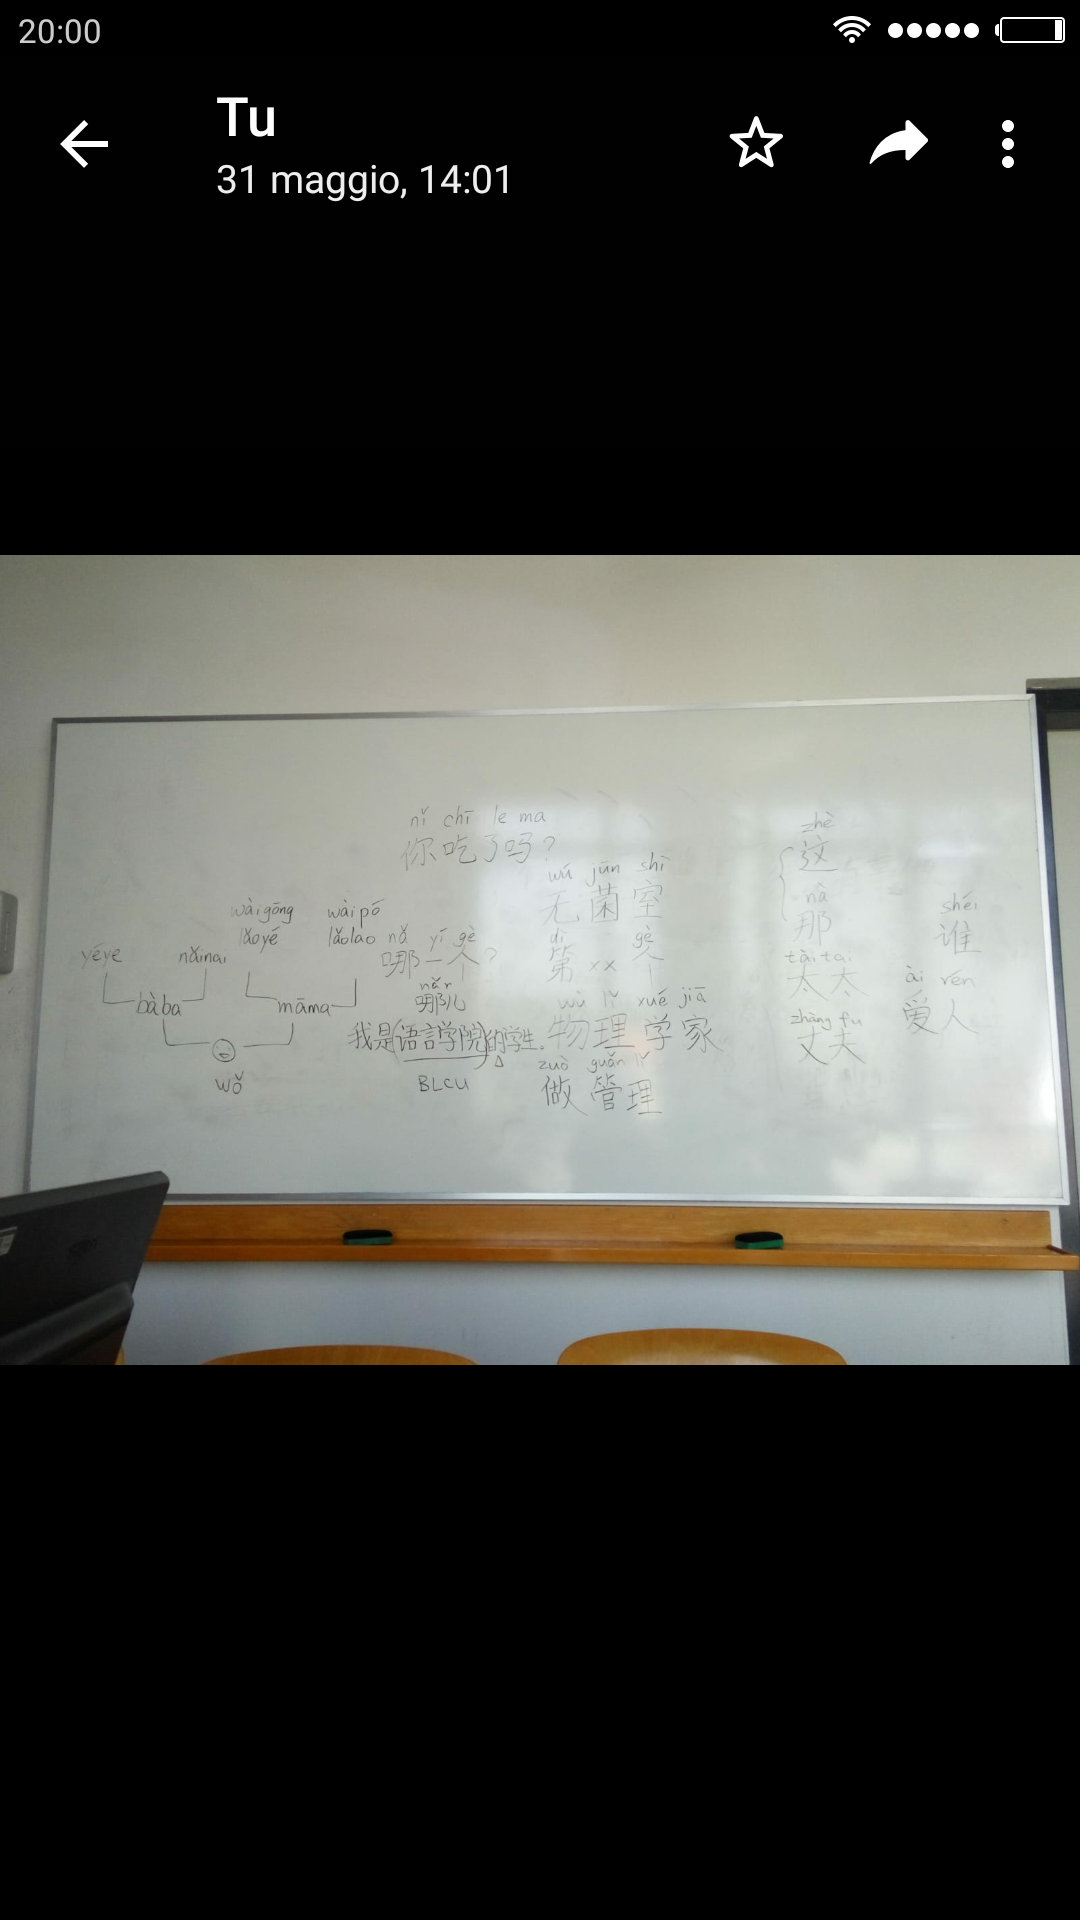 20:00
Tu
31 maggio, 14:01
nǐ chī le ma
你吃了吗?
wú jūn shì
无菌室
dì gè
第××个
wù lǐ xué jiā
物理学家
zuò guǎn lǐ
做管理
wàigōng wàipó
lǎoyé lǎolao
yéye nǎinai
bàba māma
wǒ
nǎ yí gè
哪一个?
nǎr
哪儿
我是(语言学院)的学生.
BLCU
zhè
这
nà
那
tàitai
太太
zhàngfu
丈夫
shéi
谁
ài rén
爱人